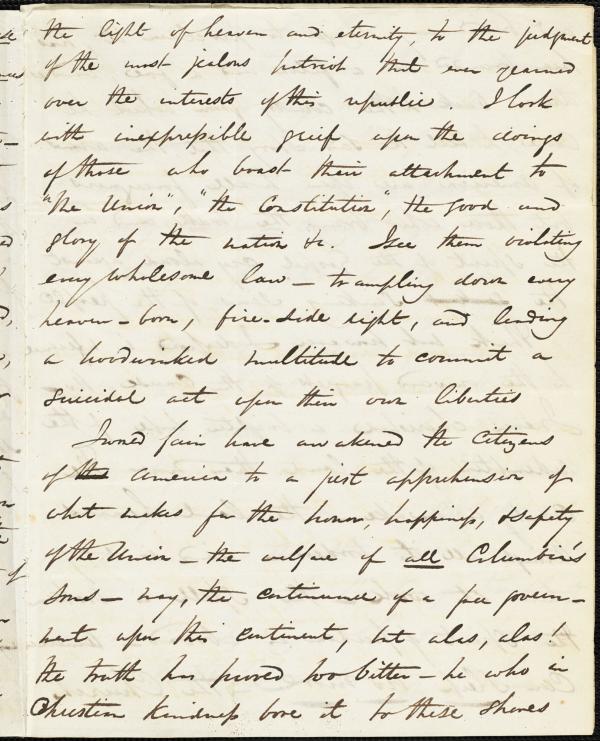 the light of heaven and eternity, to the judgment
of the most jealous patriot that ever yearned
over the interests of this republic. I look
with inexpressible grief upon the doings
of those who boast their attachment to
"the Union", "the Constitution", the good and
glory of the nation &c. I see them violating
every wholesome law — trampling down every
heaven-born, fire-side right, and leading
a hoodwinked multitude to commit a
suicidal act upon their own liberties
I woed fain have awakened the citizens
of the America to a just apprehension of
what makes for the honor, happiness, & safety
of the Union — the welfare of all Columbia's
sons — nay, the continuance of a free govern-
ment upon this continent, but alas, alas!
the truth has proved too bitter — he who in
Christian kindness bore it to these shores